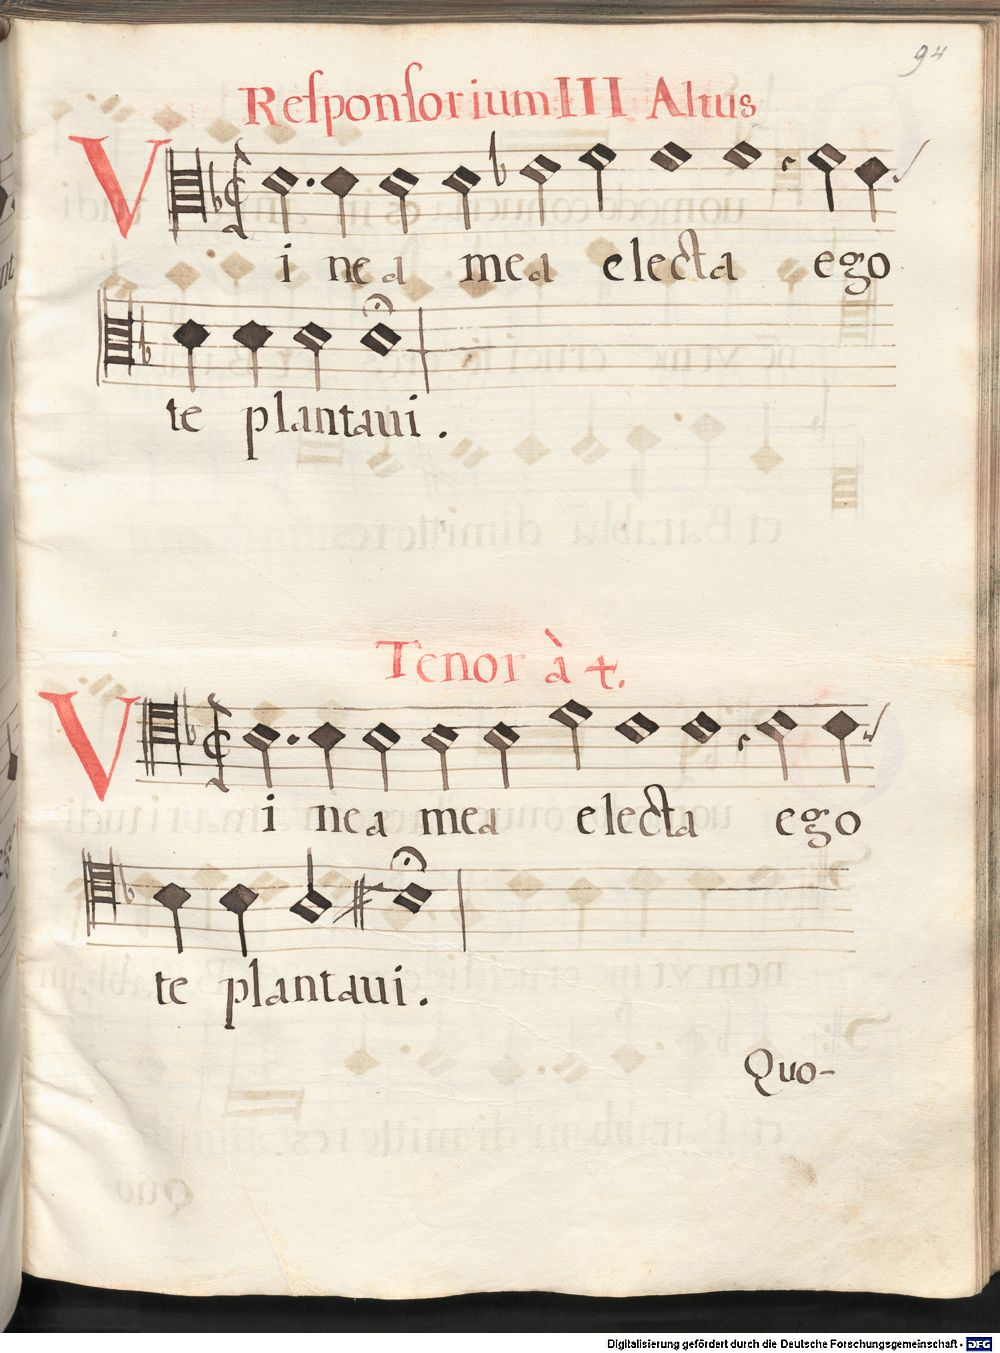 94
Reſponſorium III Altus
V i nea mea electa ego
te plantaui.
Tenor à 4.
V i nea mea electa ego
te plantaui.
Quo-
Digitalisierung gefördert durch die Deutsche Forschungsgemeinschaft - DFG